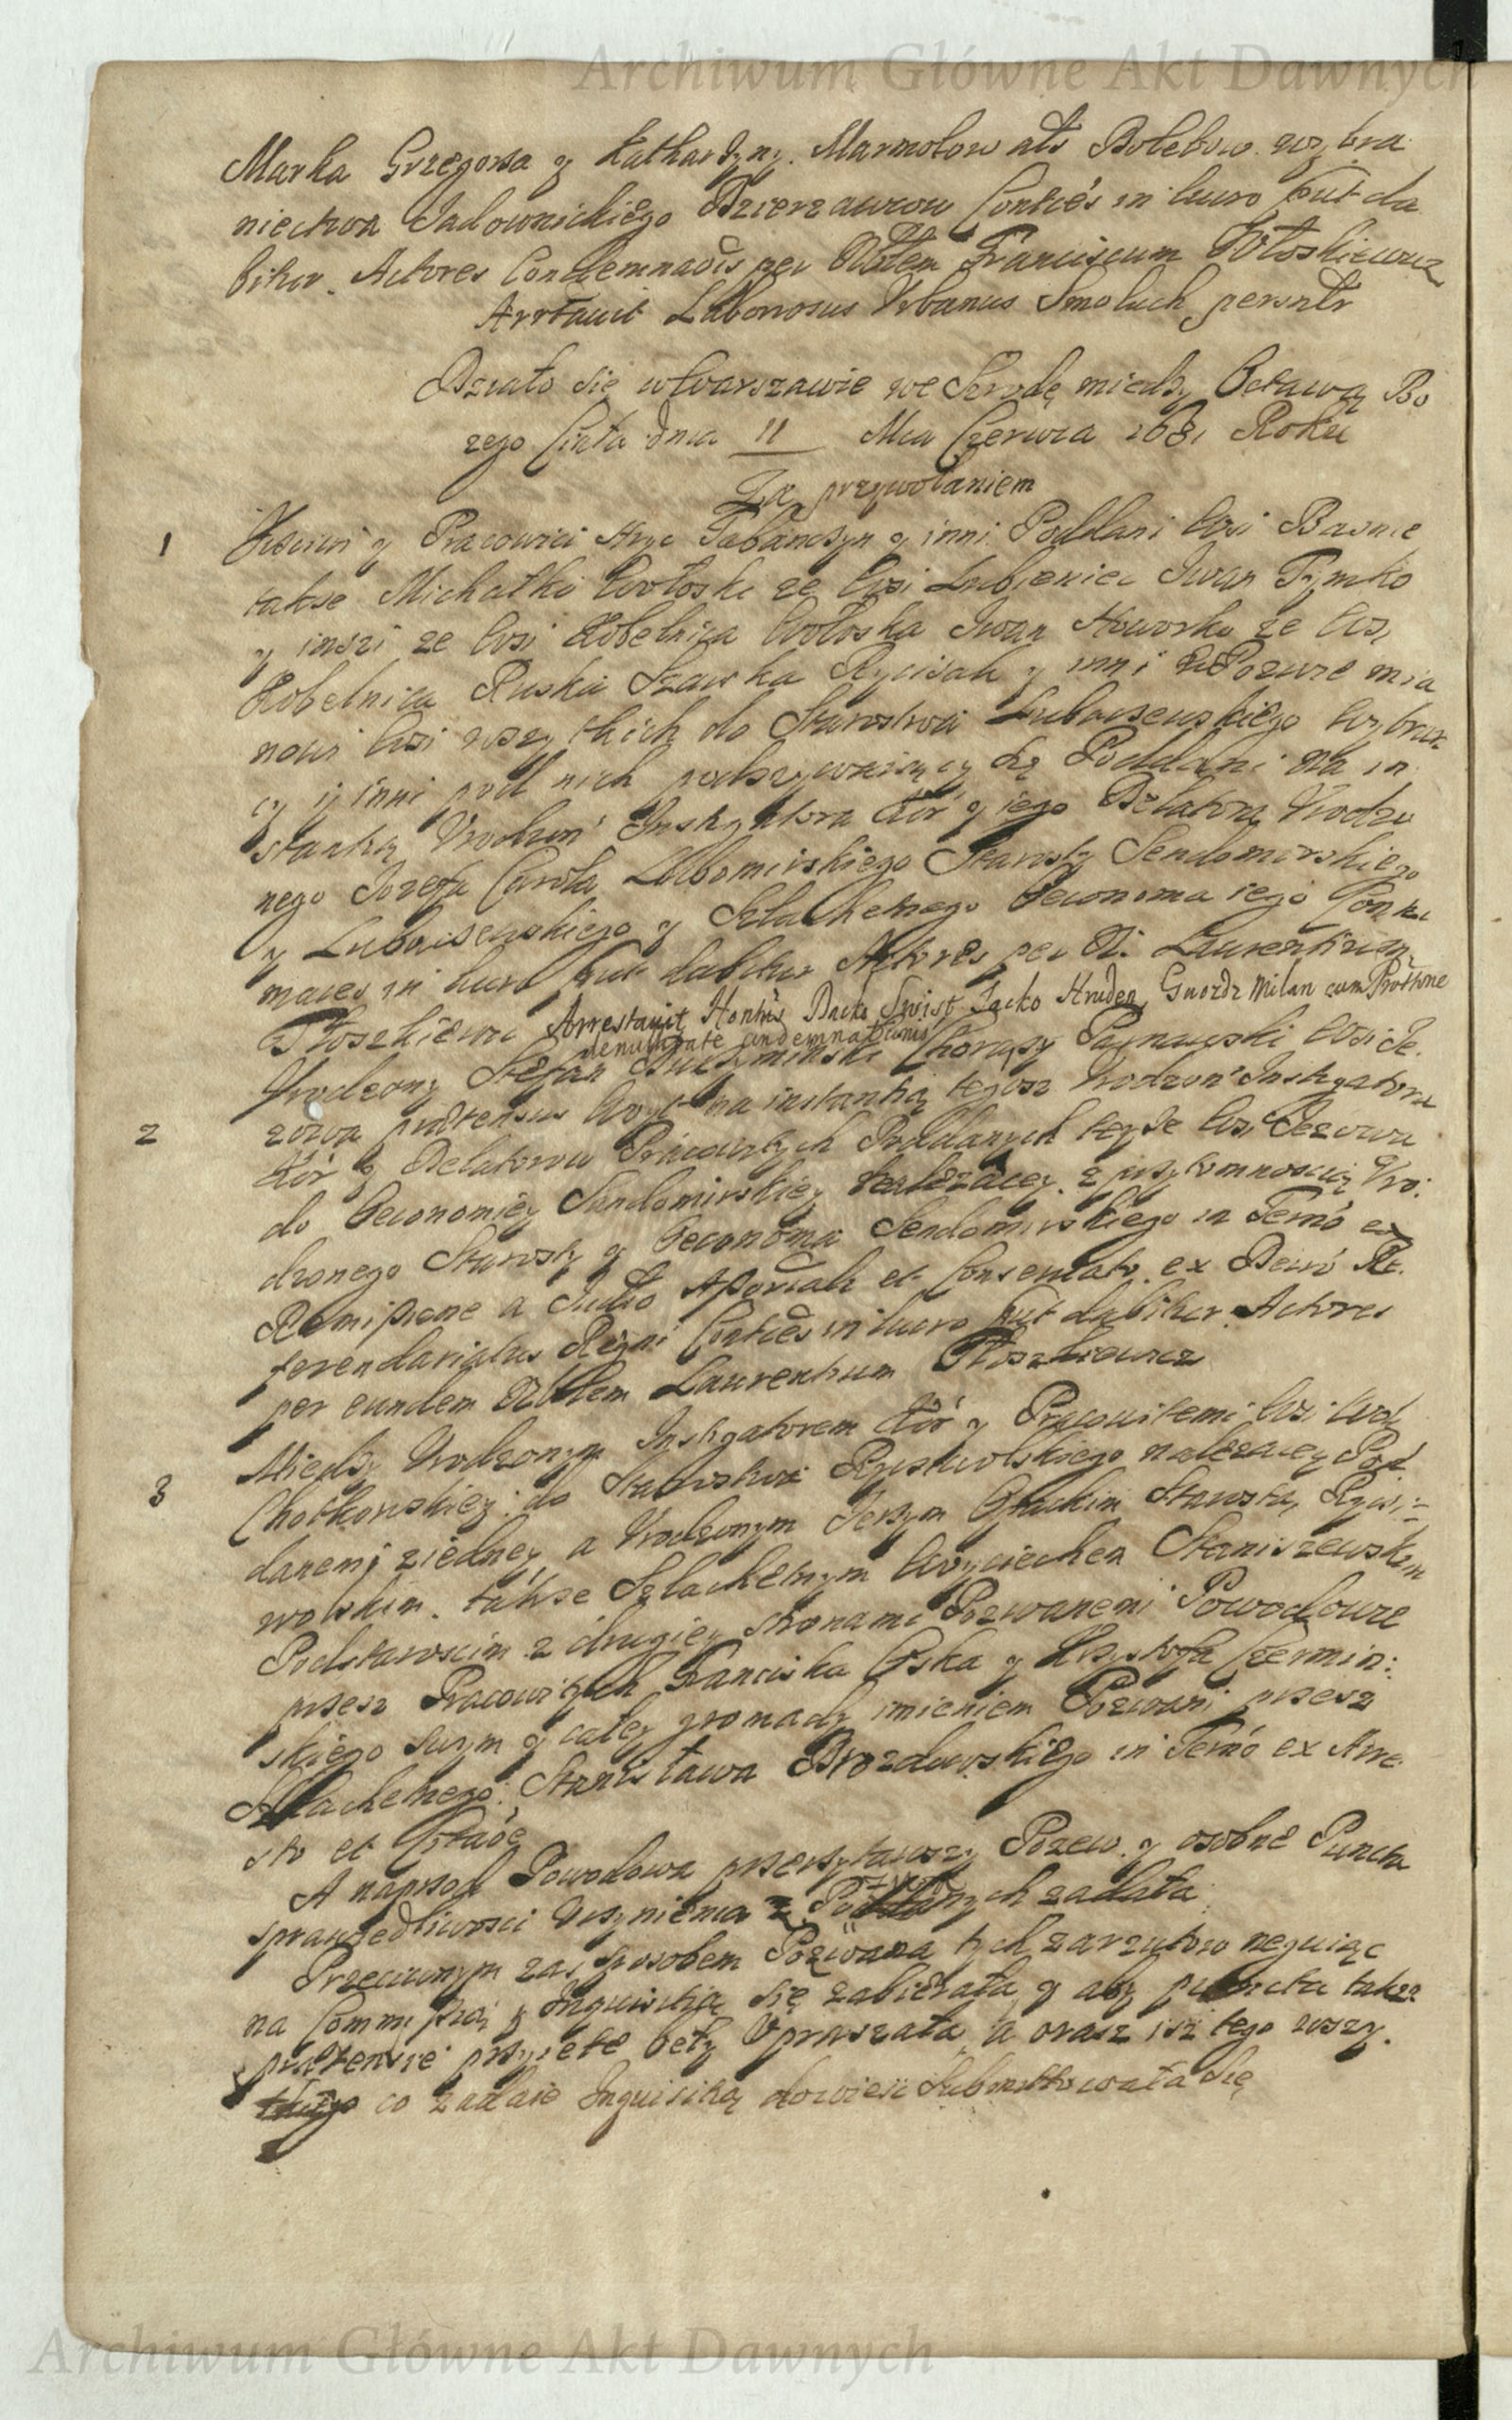 Archiwum Główne Akt Dawnych
Marka Grzegorza y Katharzyny Marmolow als Bolebow wybra
niectwa Jadownickiego Dzierzawcow in lucro put da
bitur. Actores Condemnaōis per Franciscum Włoskiewicz
Arrtauit Laboriosus Vrbanus Smoluch personlr
Działo się w Warszawie we Srzodę miedzy Octawą Bo
zego Ciała dnia 11 Mca Czerwca 1681 Roku
Za przywołaniem
1 y Pracowici Hryc y inni Poddani Wsi Basnie
takze Michałko Wołoski ze Wsi Lubieniec Iwan Tymko
y inszi ze Wsi Kobelnica Wołoska Iwan Howorko ze Wsi
Kobelnica Ruska y inni mia
nowi Wsi wszytkich do Starostwa Lubaczewskiego Wybran
cy y inni pod nich podszywaiący się Poddani na in
stantią Vrodzon Instygatora Kor y iego Delatora Vrodzo
nego Jozefa Carola Lubomirskiego Starosty Sendomirskiego
y Lubaczewskiego y Szlachetnego Oeconoma iego
in lucro put dabitur Actores per Laurentium
Płoszkiewic Arrestauit Hontis Dacko Swist Jacko Hruden Gnozdz Milan cum
condemnationis
2 Vrodzony Stefan Chorąży Wsi Je
zowa prætensus Woyt na instantią tegosz Vrodzon Instygatora
Kor y Delatorow Pracowitych Poddanych teyże Wsi Jezowa
do Oeconomiey Sandomirskiey należącey z przytomnoscią Vro
dzonego Starosty y Oeconoma Sendomirskiego in Termo ex
Remissione a Judio et Conseruato ex Decro Re
ferendariatus Regni in lucro put dabitur Actores
per eundem Laurentium Płoszkiewicz
3 Miedzy Vrodzonym Instygatorem Kor y Pracowitemi Wsi Woli
Chotkowskiey do Starostwa Ryczywolskiego należącey Pod
danemi z iedney a Vrodzonym Jerzym Starostą Ryczy
wolskim takze Szlachetnym Woyciechem Staniszewskim
Podstaroscim z drugiey stronami Pozwanemi Powodowie
przesz Pracowitych Franciska y Krzysztofa Czermin
skiego swym y całey gromady imieniem Pozwani przesz
Szlachetnego Stanisława Brozdowskiego in Termo ex Arre
sto et
A naprzod Powodowa przeczytawszy Pozew y osobne Puncta
sprawiedliwosci vczynienia z zadała
Przeciwnym zas sposobem Pozwana tych zarzutow neguiąc
na Commissią y Inquisitią się zabierała y aby puncta takze
prætensie przyięte były vpraszała a oraz isz tego wszy
tkiego co zadaie Inquisitią dowieść Submittowała się
Archiwum Główne Akt Dawnych